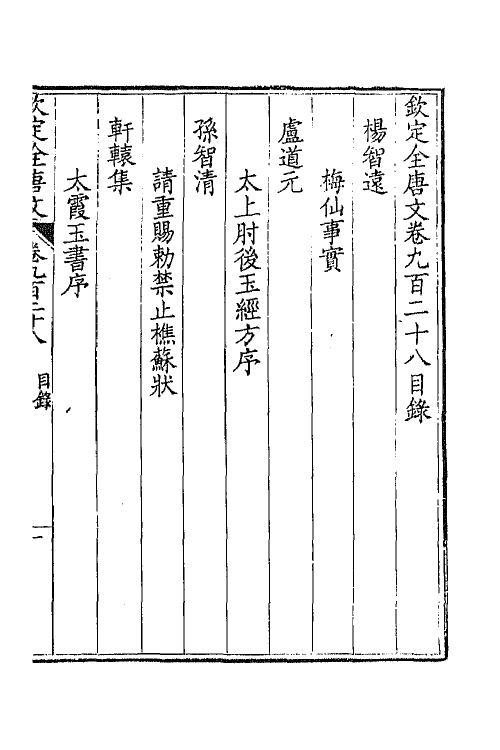 欽定全唐文卷九百二十八目錄
楊智遠
梅仙事實
盧道元
太上肘後玉經方序
孫智清
請重賜勅禁止樵蘇狀
軒轅集
太霞玉書序
欽定全唐文 卷九百二十八 目錄 一